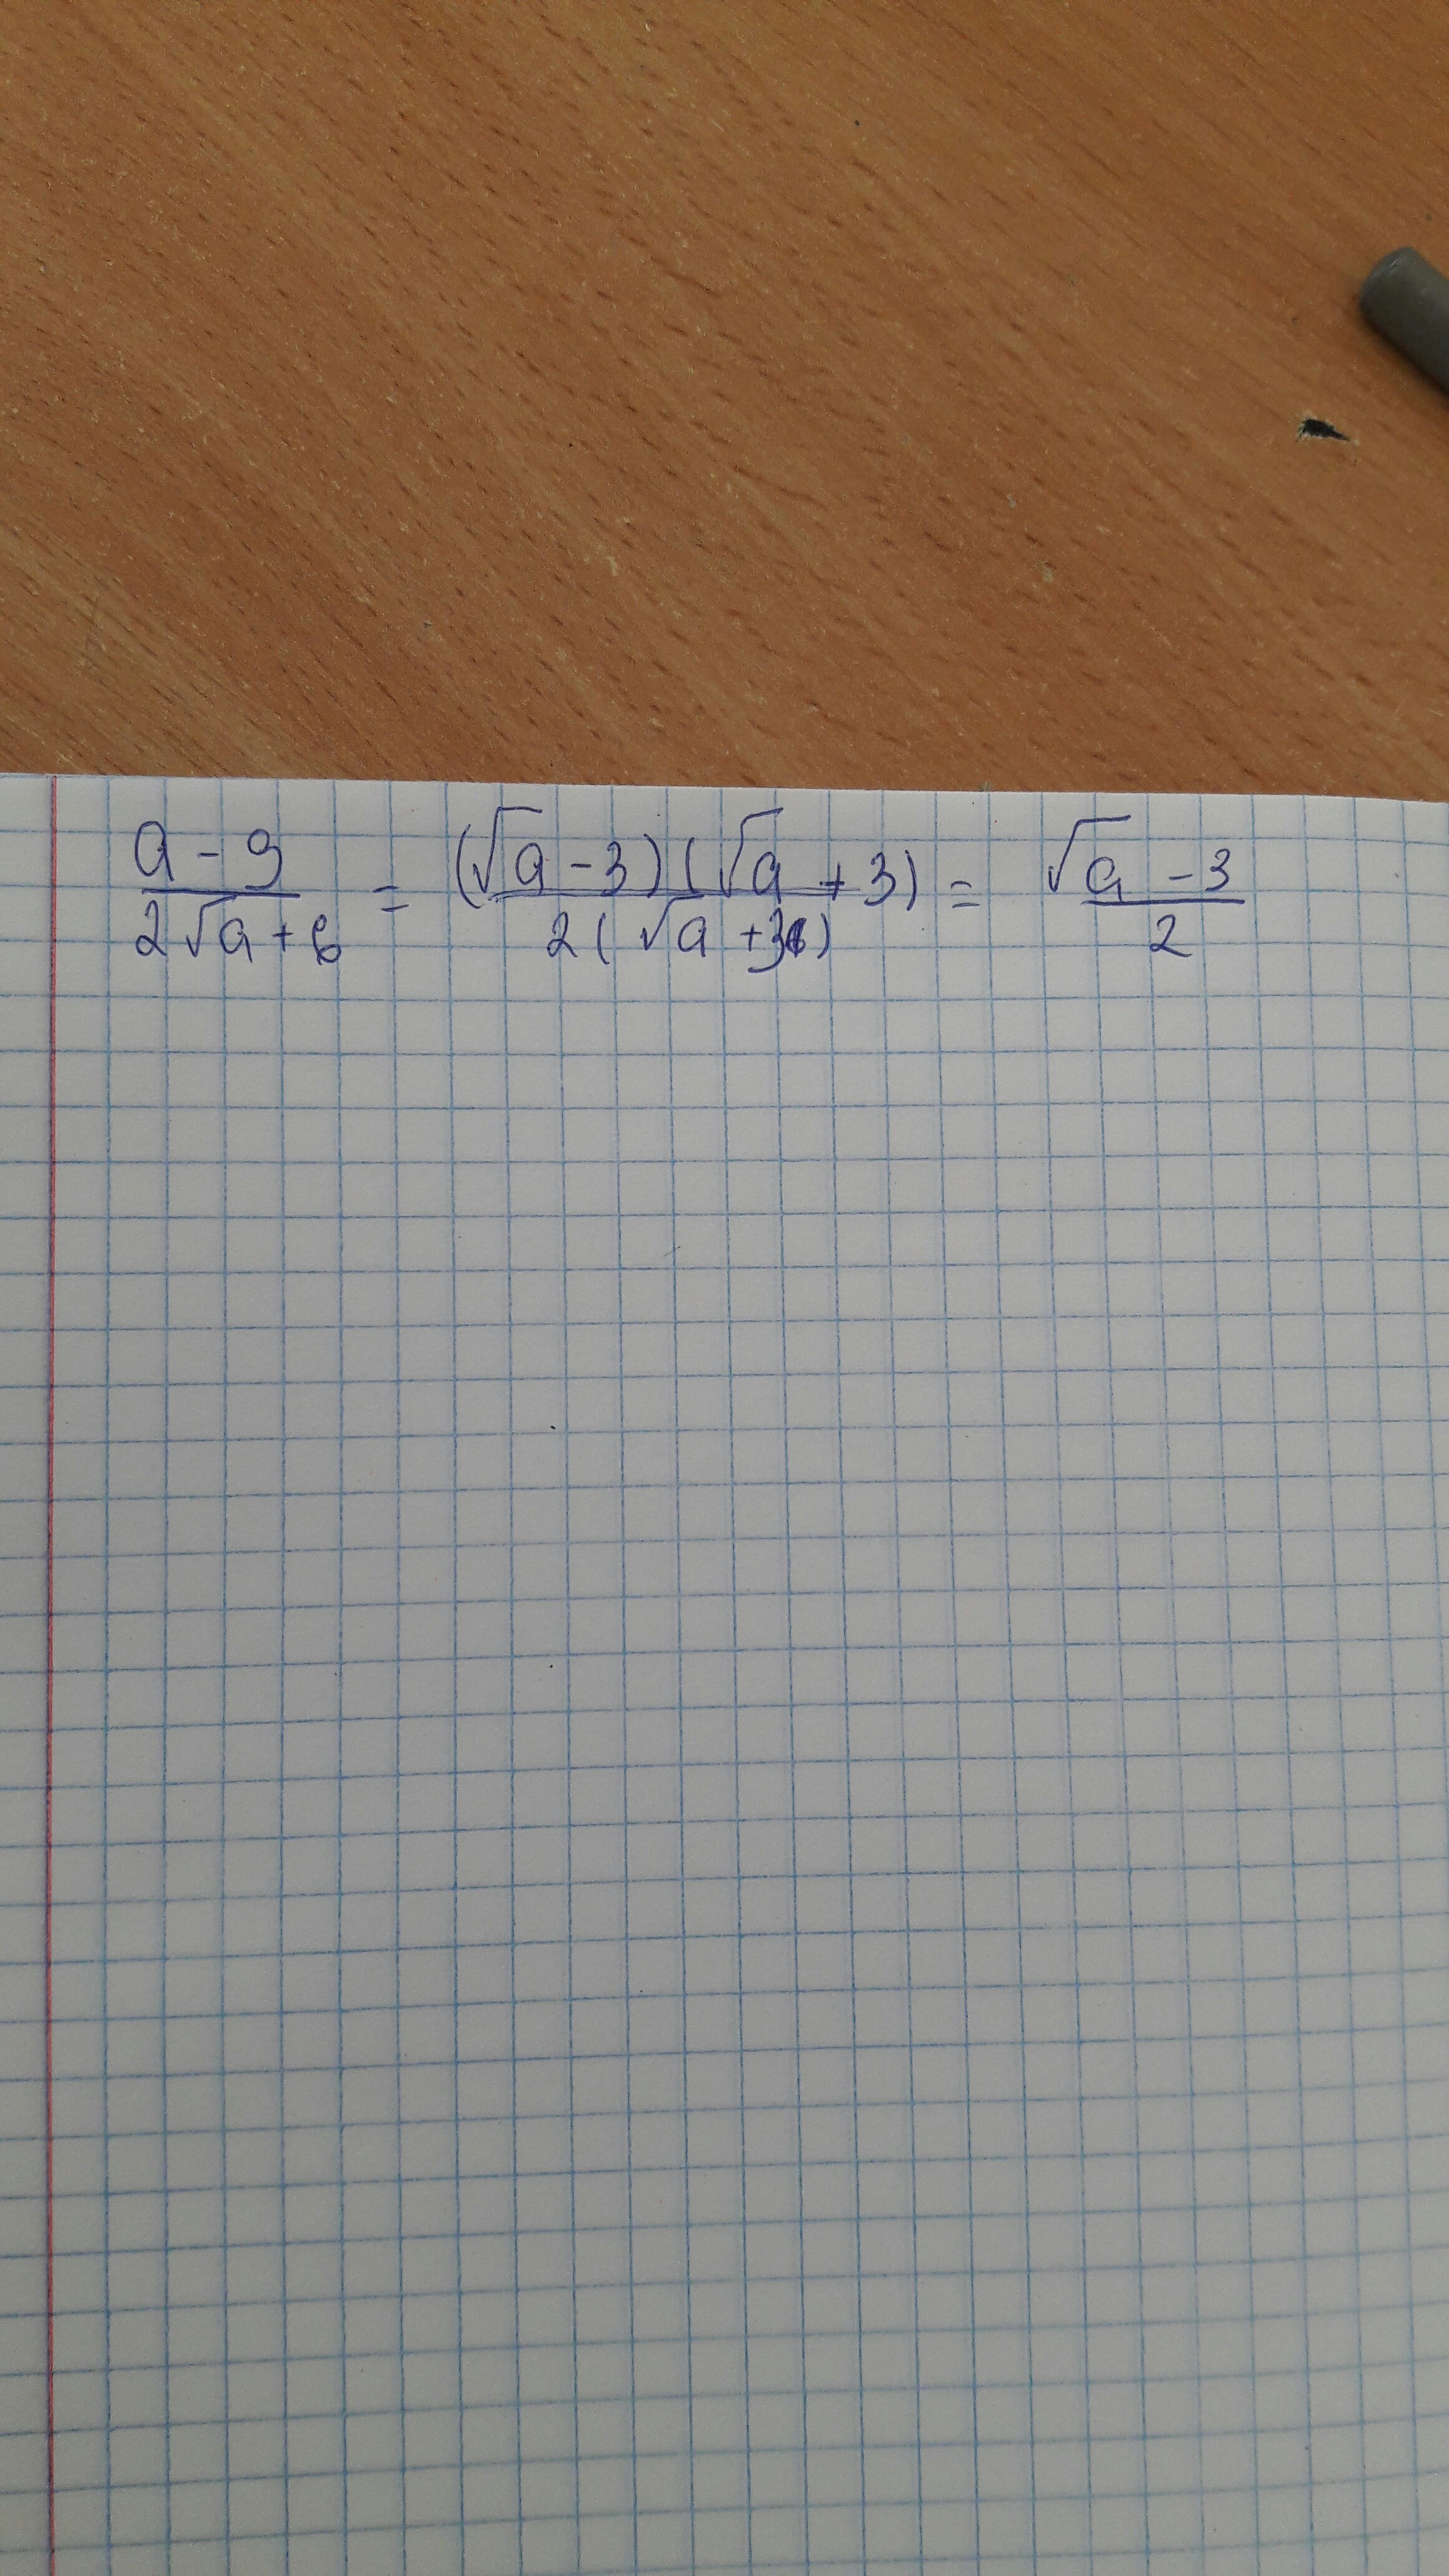 (a - 9)/(2√a + 6) = ((√a - 3)(√a + 3))/(2(√a + 3)) = (√a - 3)/2